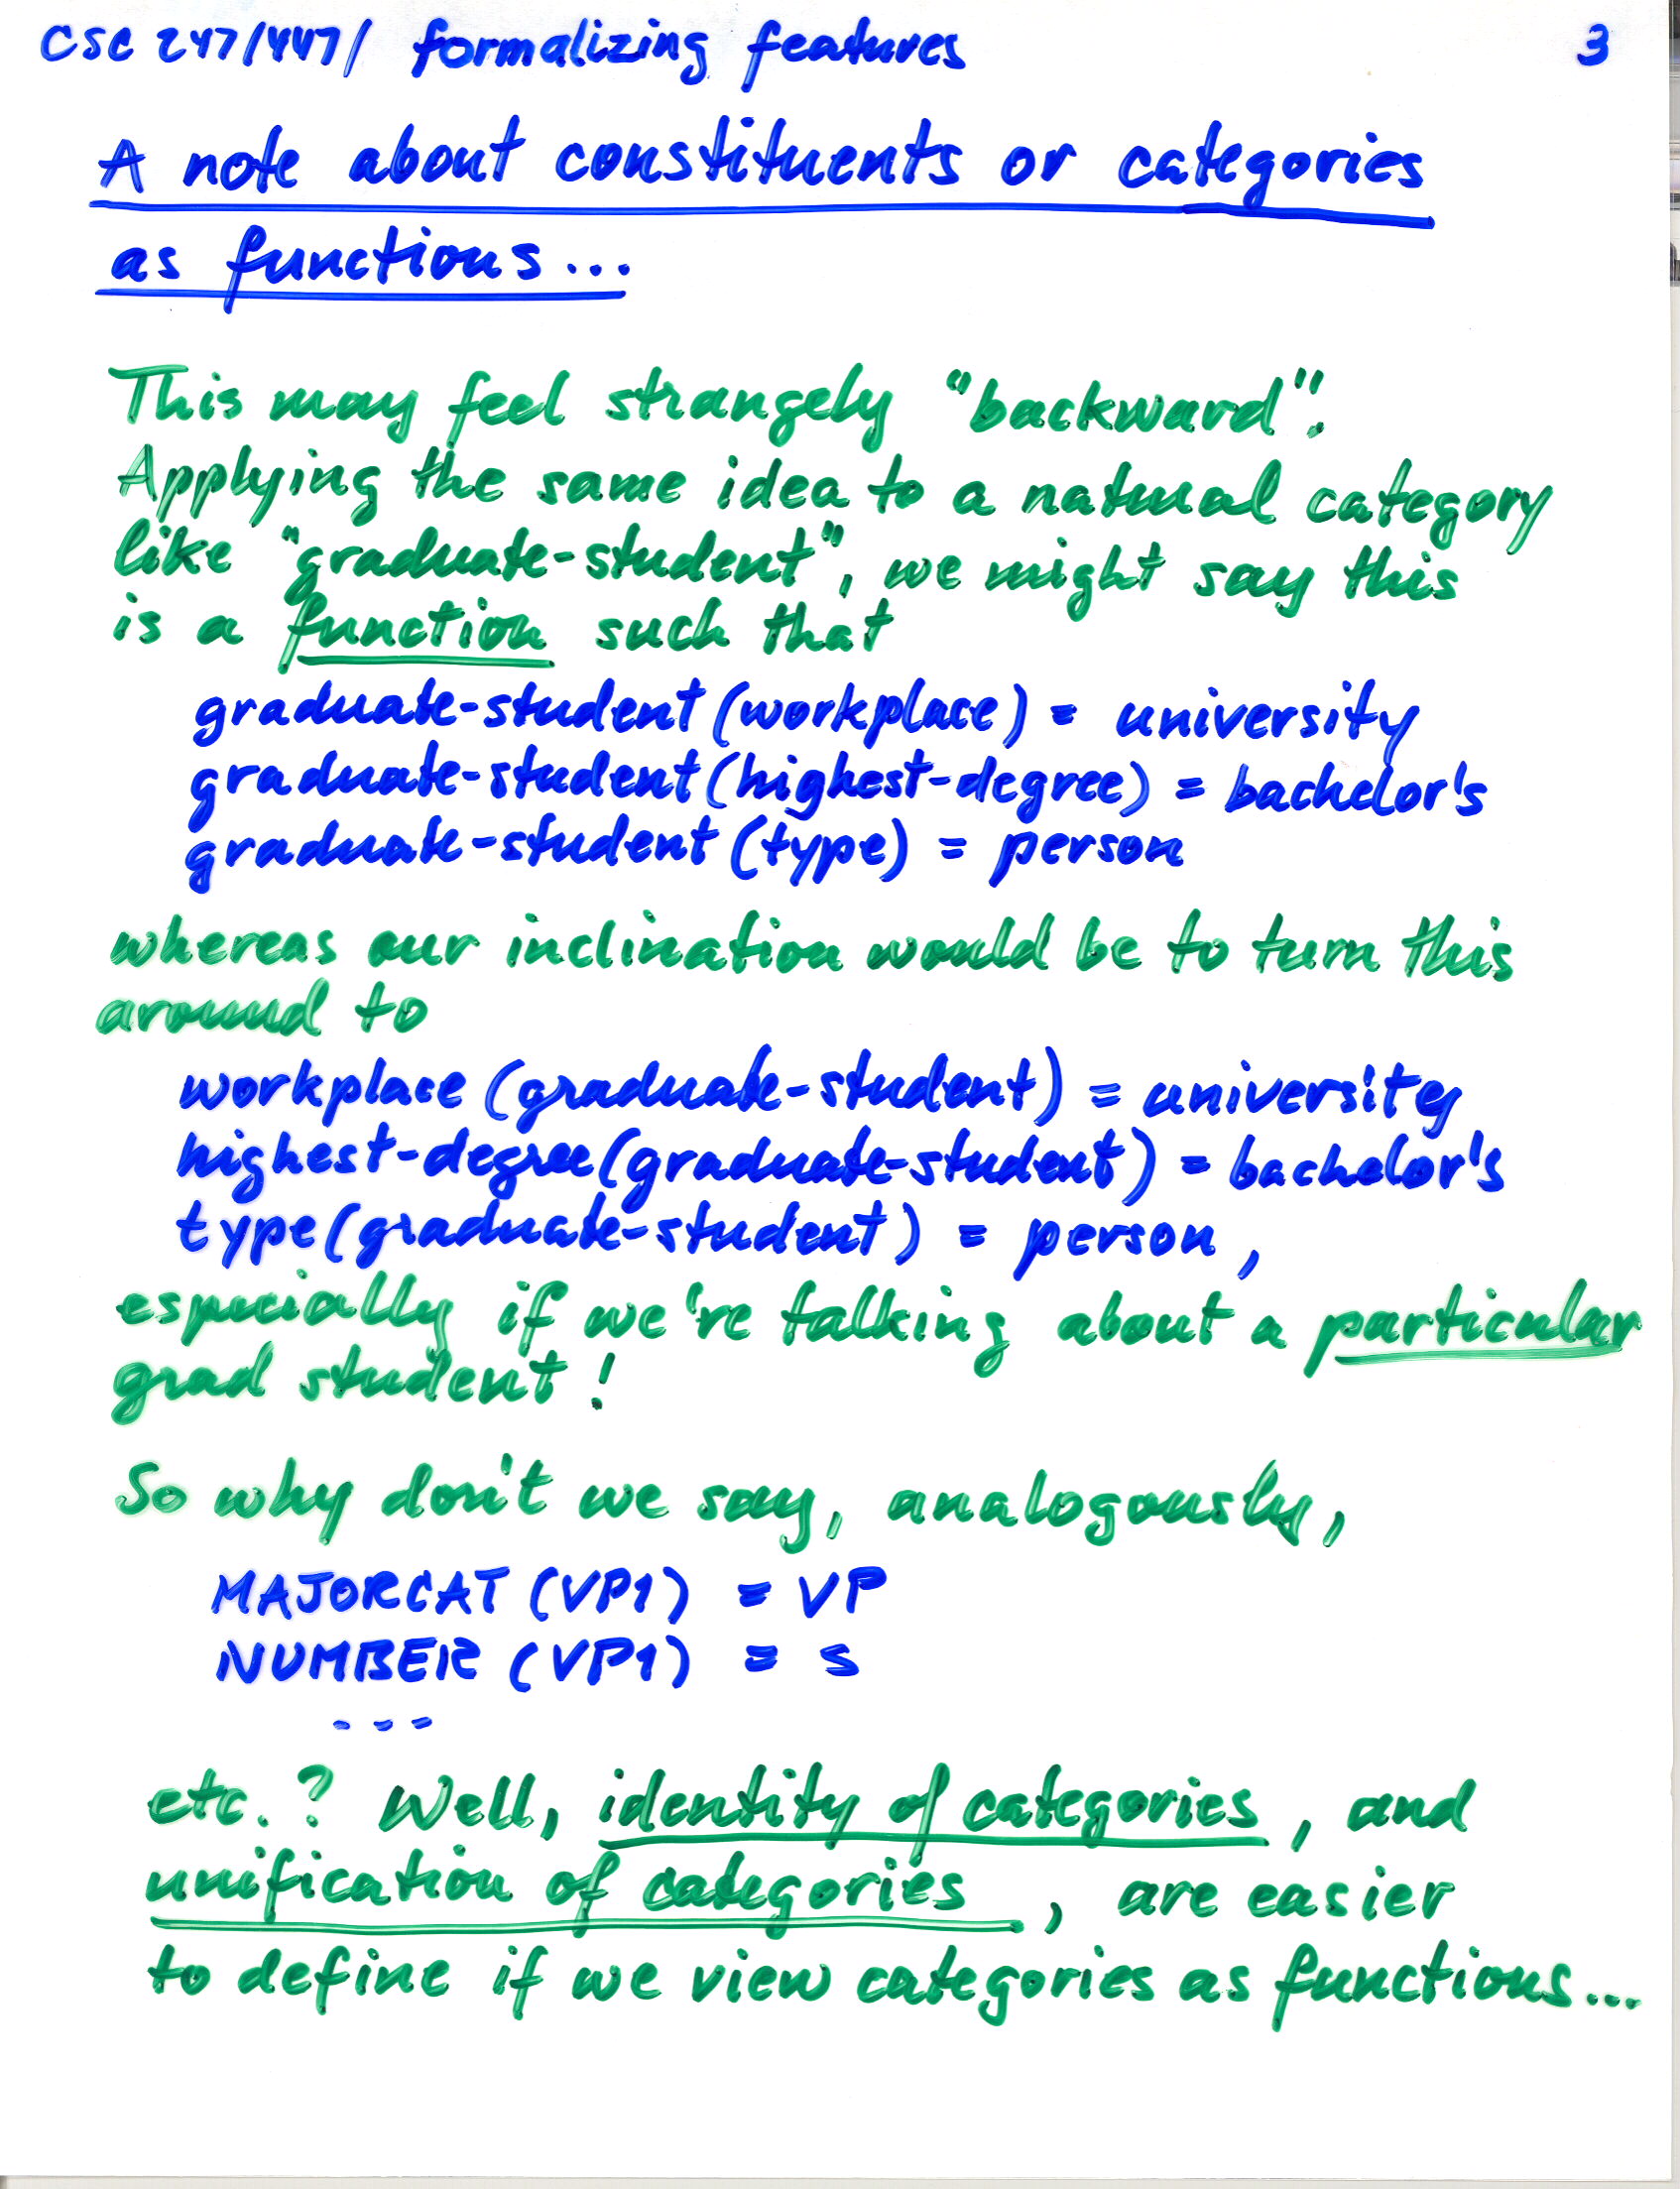 CSC 247/447/ formalizing features 3
A note about constituents or categories
as functions...
This may feel strangely "backward".
Applying the same idea to a natural category
like "graduate-student", we might say this
is a function such that
graduate-student (workplace) = university
graduate-student (highest-degree) = bachelor's
graduate-student (type) = person
whereas our inclination would be to turn this
around to
workplace (graduate-student) = university
highest-degree (graduate-student) = bachelor's
type (graduate-student) = person,
especially if we're talking about a particular
grad student!
So why don't we say, analogously,
MAJORCAT (VP1) = VP
NUMBER (VP1) = S
- - -
etc.? Well, identity of categories, and
unification of categories, are easier
to define if we view categories as functions...